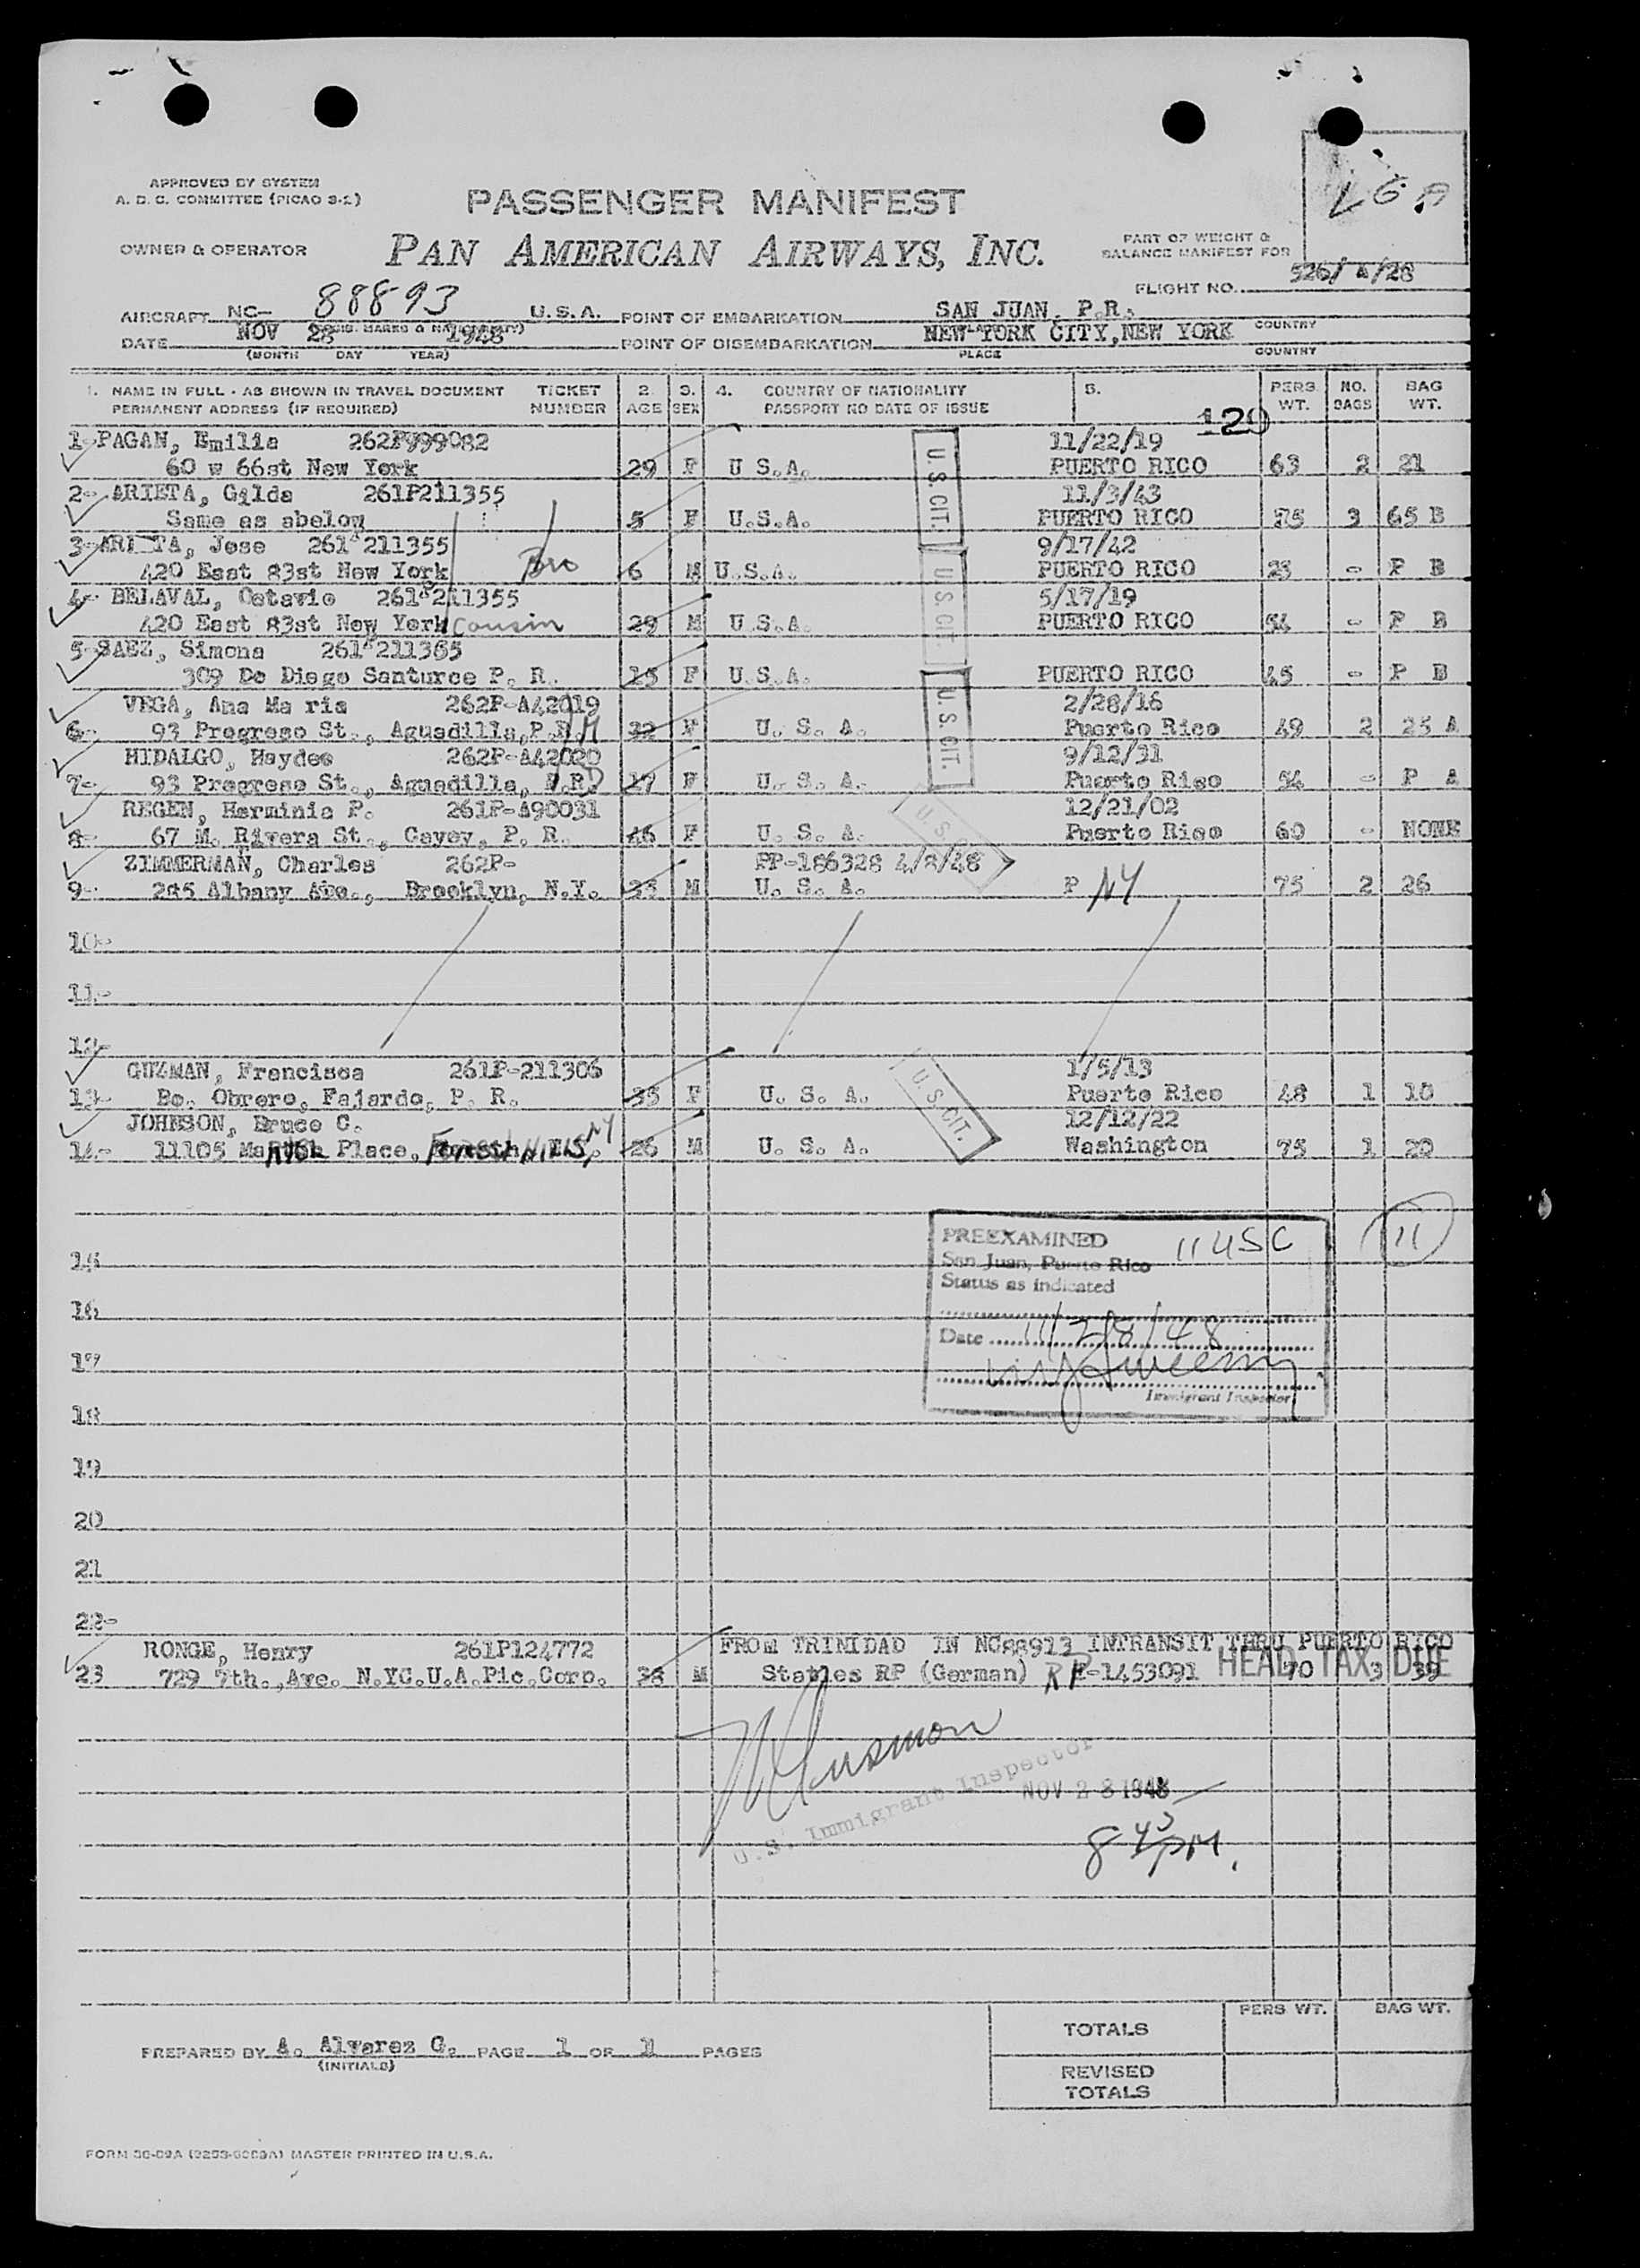 APPROVED BY SYSTEM
A. D. C. COMMITTEE (PICAO 3-2)
PASSENGER MANIFEST
LGA
OWNER & OPERATOR
PAN AMERICAN AIRWAYS, INC.
PART OF WEIGHT &
BALANCE MANIFEST FOR
FLIGHT NO. 526/ /28
AIRCRAFT NC- 88893 U.S.A. POINT OF EMBARKATION SAN JUAN, P.R.
DATE NOV 28 1948 POINT OF DISEMBARKATION NEW YORK CITY, NEW YORK COUNTRY
(MONTH DAY YEAR) PLACE COUNTRY
1. NAME IN FULL - AS SHOWN IN TRAVEL DOCUMENT TICKET 2. 3. 4. COUNTRY OF NATIONALITY 5. PERS. NO. BAG
PERMANENT ADDRESS (IF REQUIRED) NUMBER AGE SEX PASSPORT NO DATE OF ISSUE WT. BAGS WT.
129
1- PAGAN, Emilia 262P999082 11/22/19
60 w 66st New York 29 F U S.A. PUERTO RICO 63 2 21
2- ARIETA, Gilda 261P211355 11/3/43
Same as abelow 5 F U.S.A. PUERTO RICO 75 3 65 B
3- ARI TA, Jose 261P211355 9/17/42
420 East 83st New York Bro 6 M U.S.A. PUERTO RICO 23 - P B
4- BELAVAL, Octavio 261P211355 5/17/19
420 East 83st New York cousin 29 M U.S.A. PUERTO RICO 54 - P B
5- SAEZ, Simona 261P211365
309 De Diego Santurce P. R. F U.S.A. PUERTO RICO 45 - P B
VEGA, Ana Ma ria 262P-A42019 2/28/16
6- 93 Progreso St., Aguadilla, P.R. M 32 F U. S. A. Puerto Rico 49 2 25 A
HIDALGO, Haydee 262P-A42020 9/12/31
7- 93 Progreso St., Aguadilla, P.R. D 17 F U. S. A. Puerto Rico 54 - P A
REGEN, Herminia P. 261P-A90031 12/21/02
8- 67 M. Rivera St., Cayey, P. R. 46 F U. S. A. Puerto Rico 60 - NONE
ZIMMERMAN, Charles 262P- PP-186328 4/8/48
9- 245 Albany Ave., Brooklyn, N.Y. M U. S. A. P NY 75 2 26
U. S. CIT.
U. S. CIT.
U. S. CIT.
10-
11-
12-
GUZMAN, Francisca 261P-211306 1/5/13
13- Bo. Obrero, Fajardo, P. R. 35 F U. S. A. Puerto Rico 48 1 10
JOHNSON, Bruce C. 12/12/22
14- 11105 Place, Forest Hills, NY 26 M U. S. A. Washington 75 1 20
U. S. CIT.
PREEXAMINED 11 USC 11
San Juan, Puerto Rico
Status as indicated
Date 11/28/48
Immigrant Inspector
15
16
17
18
19
20
21
22-
RONGE, Henry 261P124772 FROM TRINIDAD IN NC88913 INTRANSIT THRU PUERTO RICO
23 729 7th.,Ave. N.YC.U.A.Pic.Corp. M RP (German) RP -1453091 70 3 39
HEAD TAX DUE
U.S. Immigrant Inspector
NOV 28 1948
8 45 PM.
PERS WT. BAG WT.
TOTALS
PREPARED BY A. Alvarez G. PAGE 1 OF 1 PAGES
(INITIALS)
REVISED
TOTALS
MASTER PRINTED IN U.S.A.